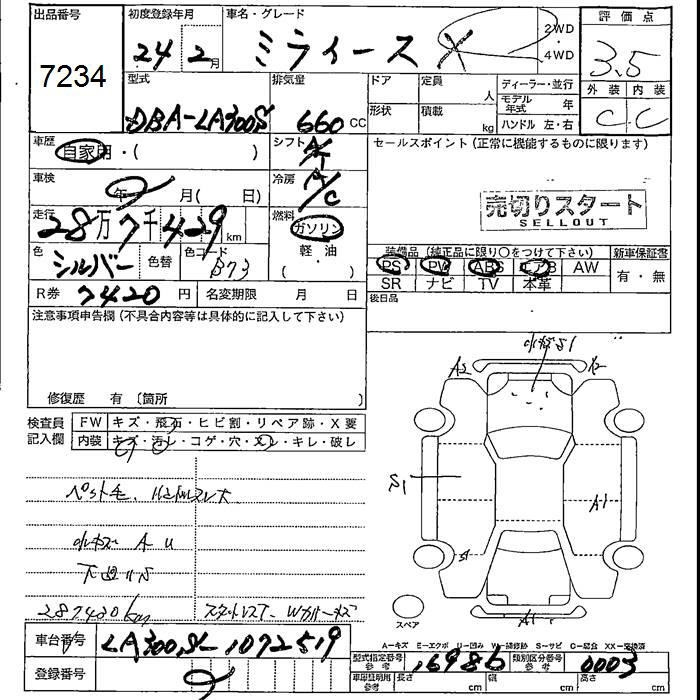 出品番号
7234
初度登録年月
24 2月
車名・グレード
ミライース X
2WD
4WD
評価点
3.5
外装 内装
C C
型式
DBA-LA300S
排気量
660 CC
ドア
定員
人
形状
積載
kg
ディーラー・並行
モデル年式 年
ハンドル 左・右
車歴
自家用・( )
シフト
A/T
セールスポイント(正常に機能するものに限ります)
車検
年 月( 日)
冷房
A/C
売切りスタート
SELLOUT
走行
28万7千429km
燃料
ガソリン
軽・油
( )
色
シルバー
色替
色コード
B73
装備品(純正品に限り○をつけて下さい)
新車保証書
PS PW ABS エアB AW
有・無
SR ナビ TV 本革
R券 7420円
名変期限 月 日
後日品
注意事項申告欄(不具合内容等は具体的に記入して下さい)
修復歴 有〔箇所 〕
検査員記入欄
FW キズ・飛石・ヒビ割・リペア跡・X要
内装 キズ・汚レ・コゲ・穴・メレ・キレ・破レ
ペット毛
A U
287420km
A2
A2
S1
A1
A1
スペア
A=キズ E=エクボ
車台番号
LA300S-1072519
登録番号
型式指定番号 参考
16986
類別区分番号 参考
0003
車庫証明用 参考
長さ cm
幅 cm
高さ cm